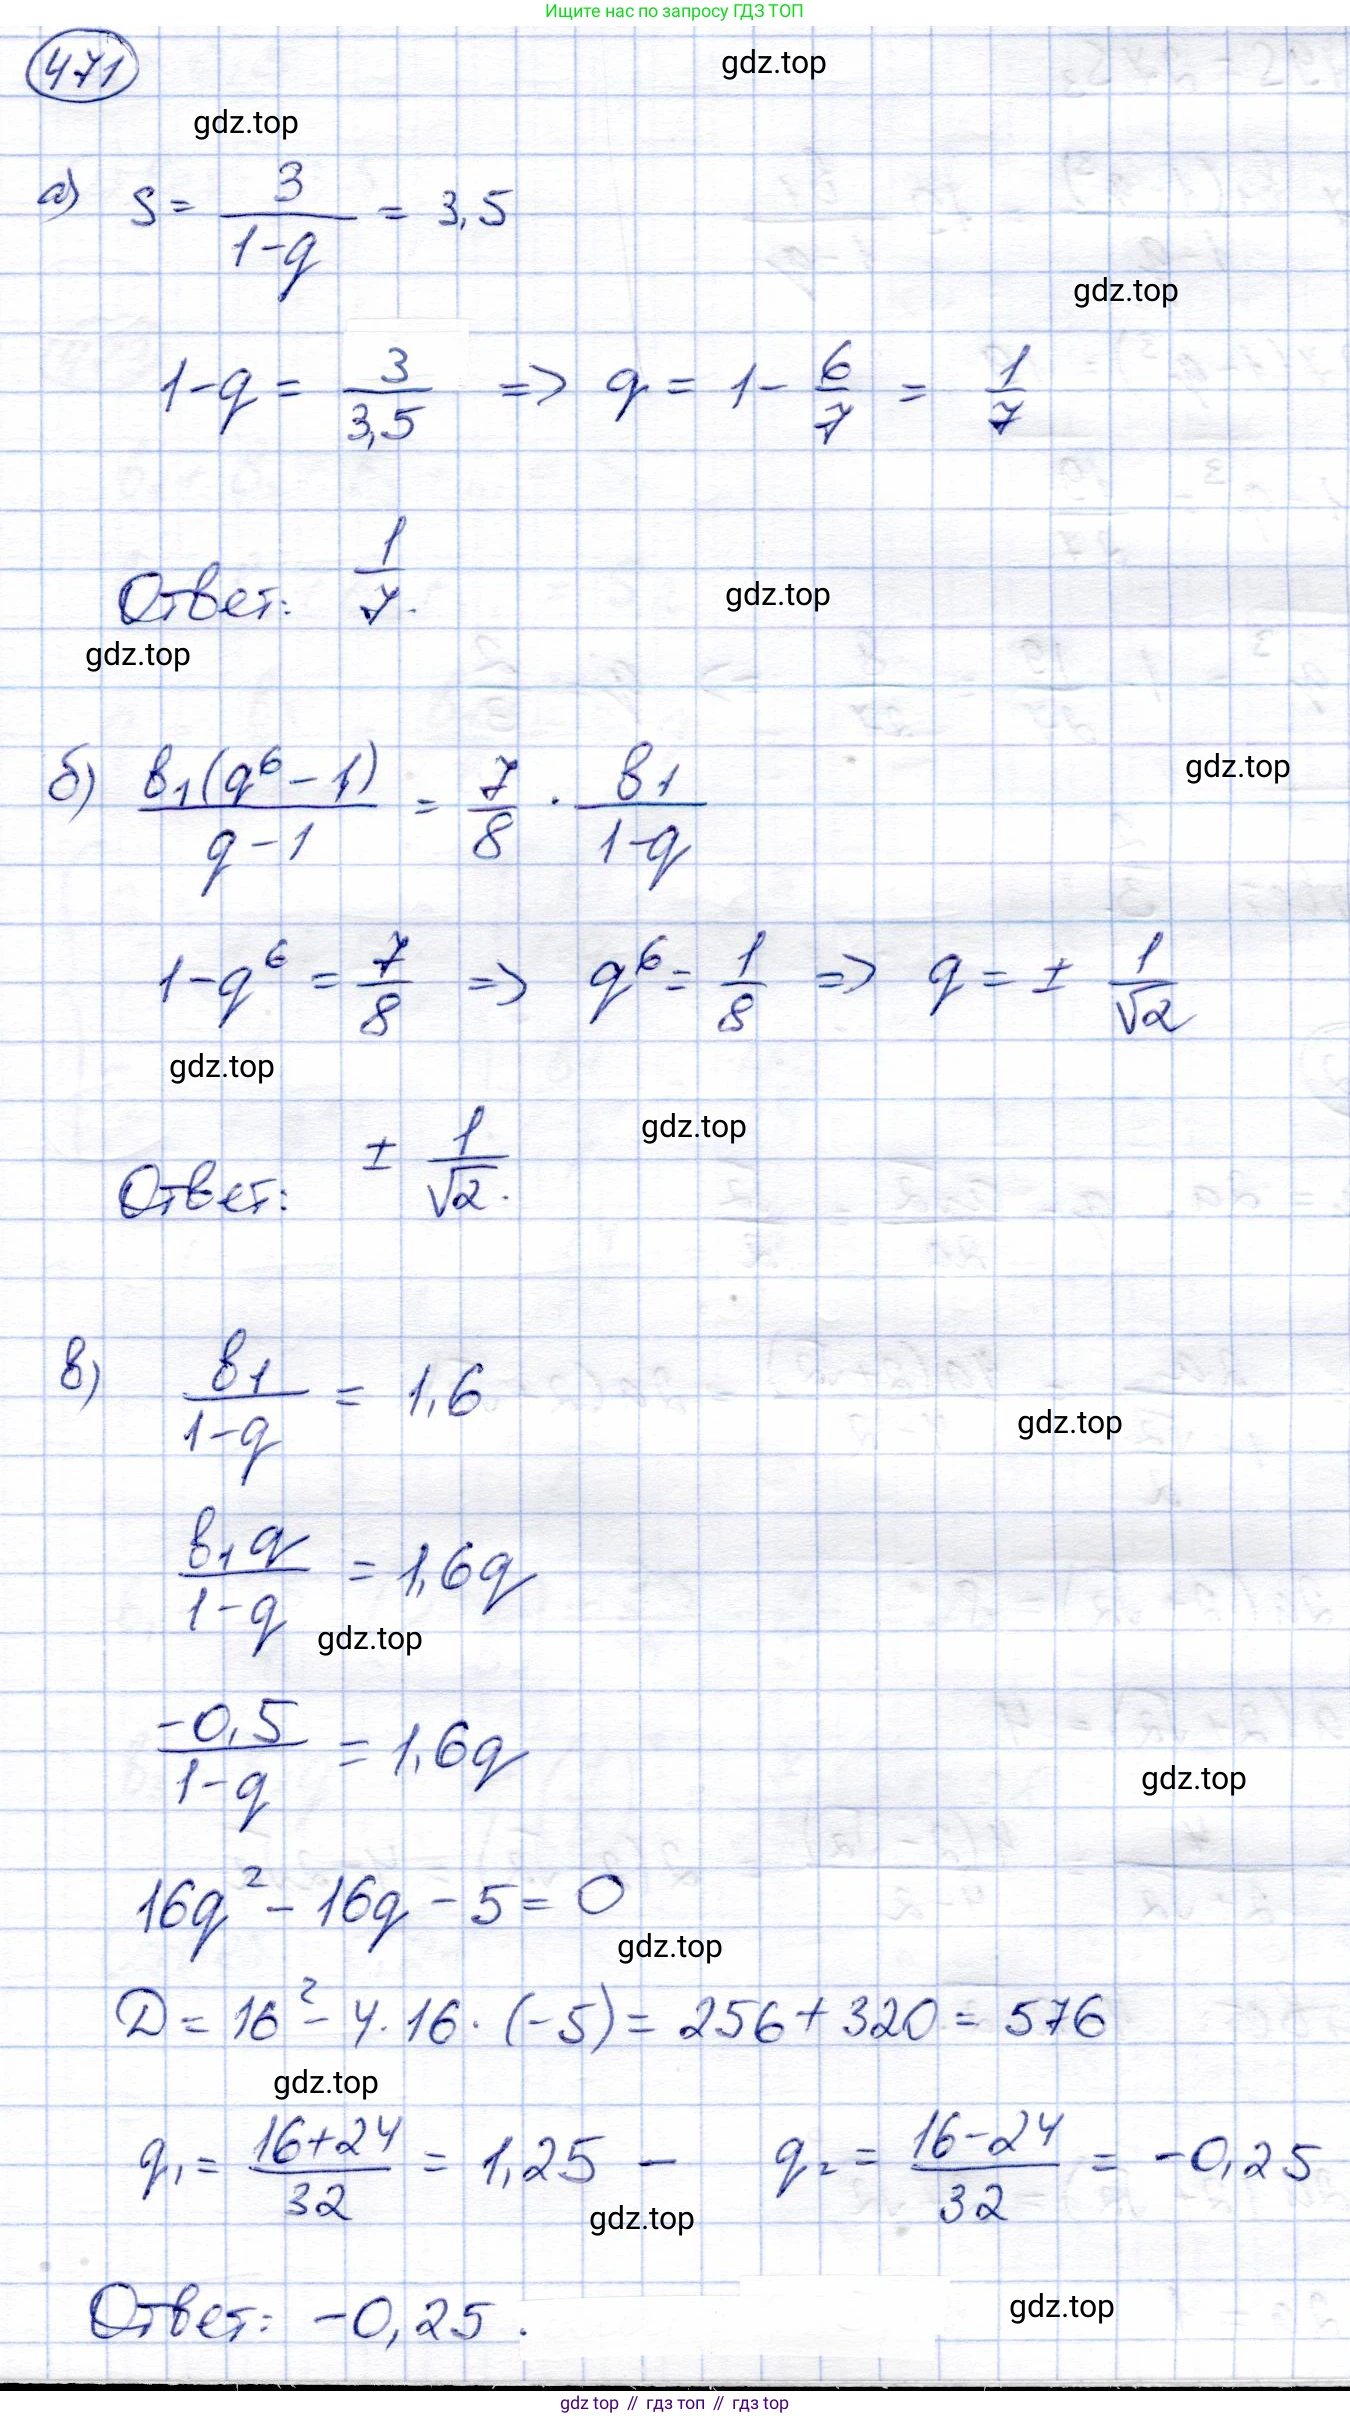 Ищите нас по запросу ГДЗ ТОП
471
gdz.top
gdz.top
а) S = 3/(1-q) = 3,5
gdz.top
1-q = 3/3,5 => q = 1 - 6/7 = 1/7
Ответ: 1/7.
gdz.top
gdz.top
б) b₁(q⁶-1)/(q-1) = 7/8 · b₁/(1-q)
gdz.top
1-q⁶ = 7/8 => q⁶ = 1/8 => q = ± 1/√2
gdz.top
gdz.top
Ответ: ± 1/√2.
в) b₁/(1-q) = 1,6
gdz.top
b₁q/(1-q) = 1,6q
gdz.top
-0,5/(1-q) = 1,6q
gdz.top
16q² - 16q - 5 = 0
gdz.top
D = 16² - 4·16·(-5) = 256 + 320 = 576
gdz.top
q₁ = (16+24)/32 = 1,25 – q₂ = (16-24)/32 = -0,25
gdz.top
Ответ: -0,25.
gdz.top
gdz top // гдз топ // гдз top